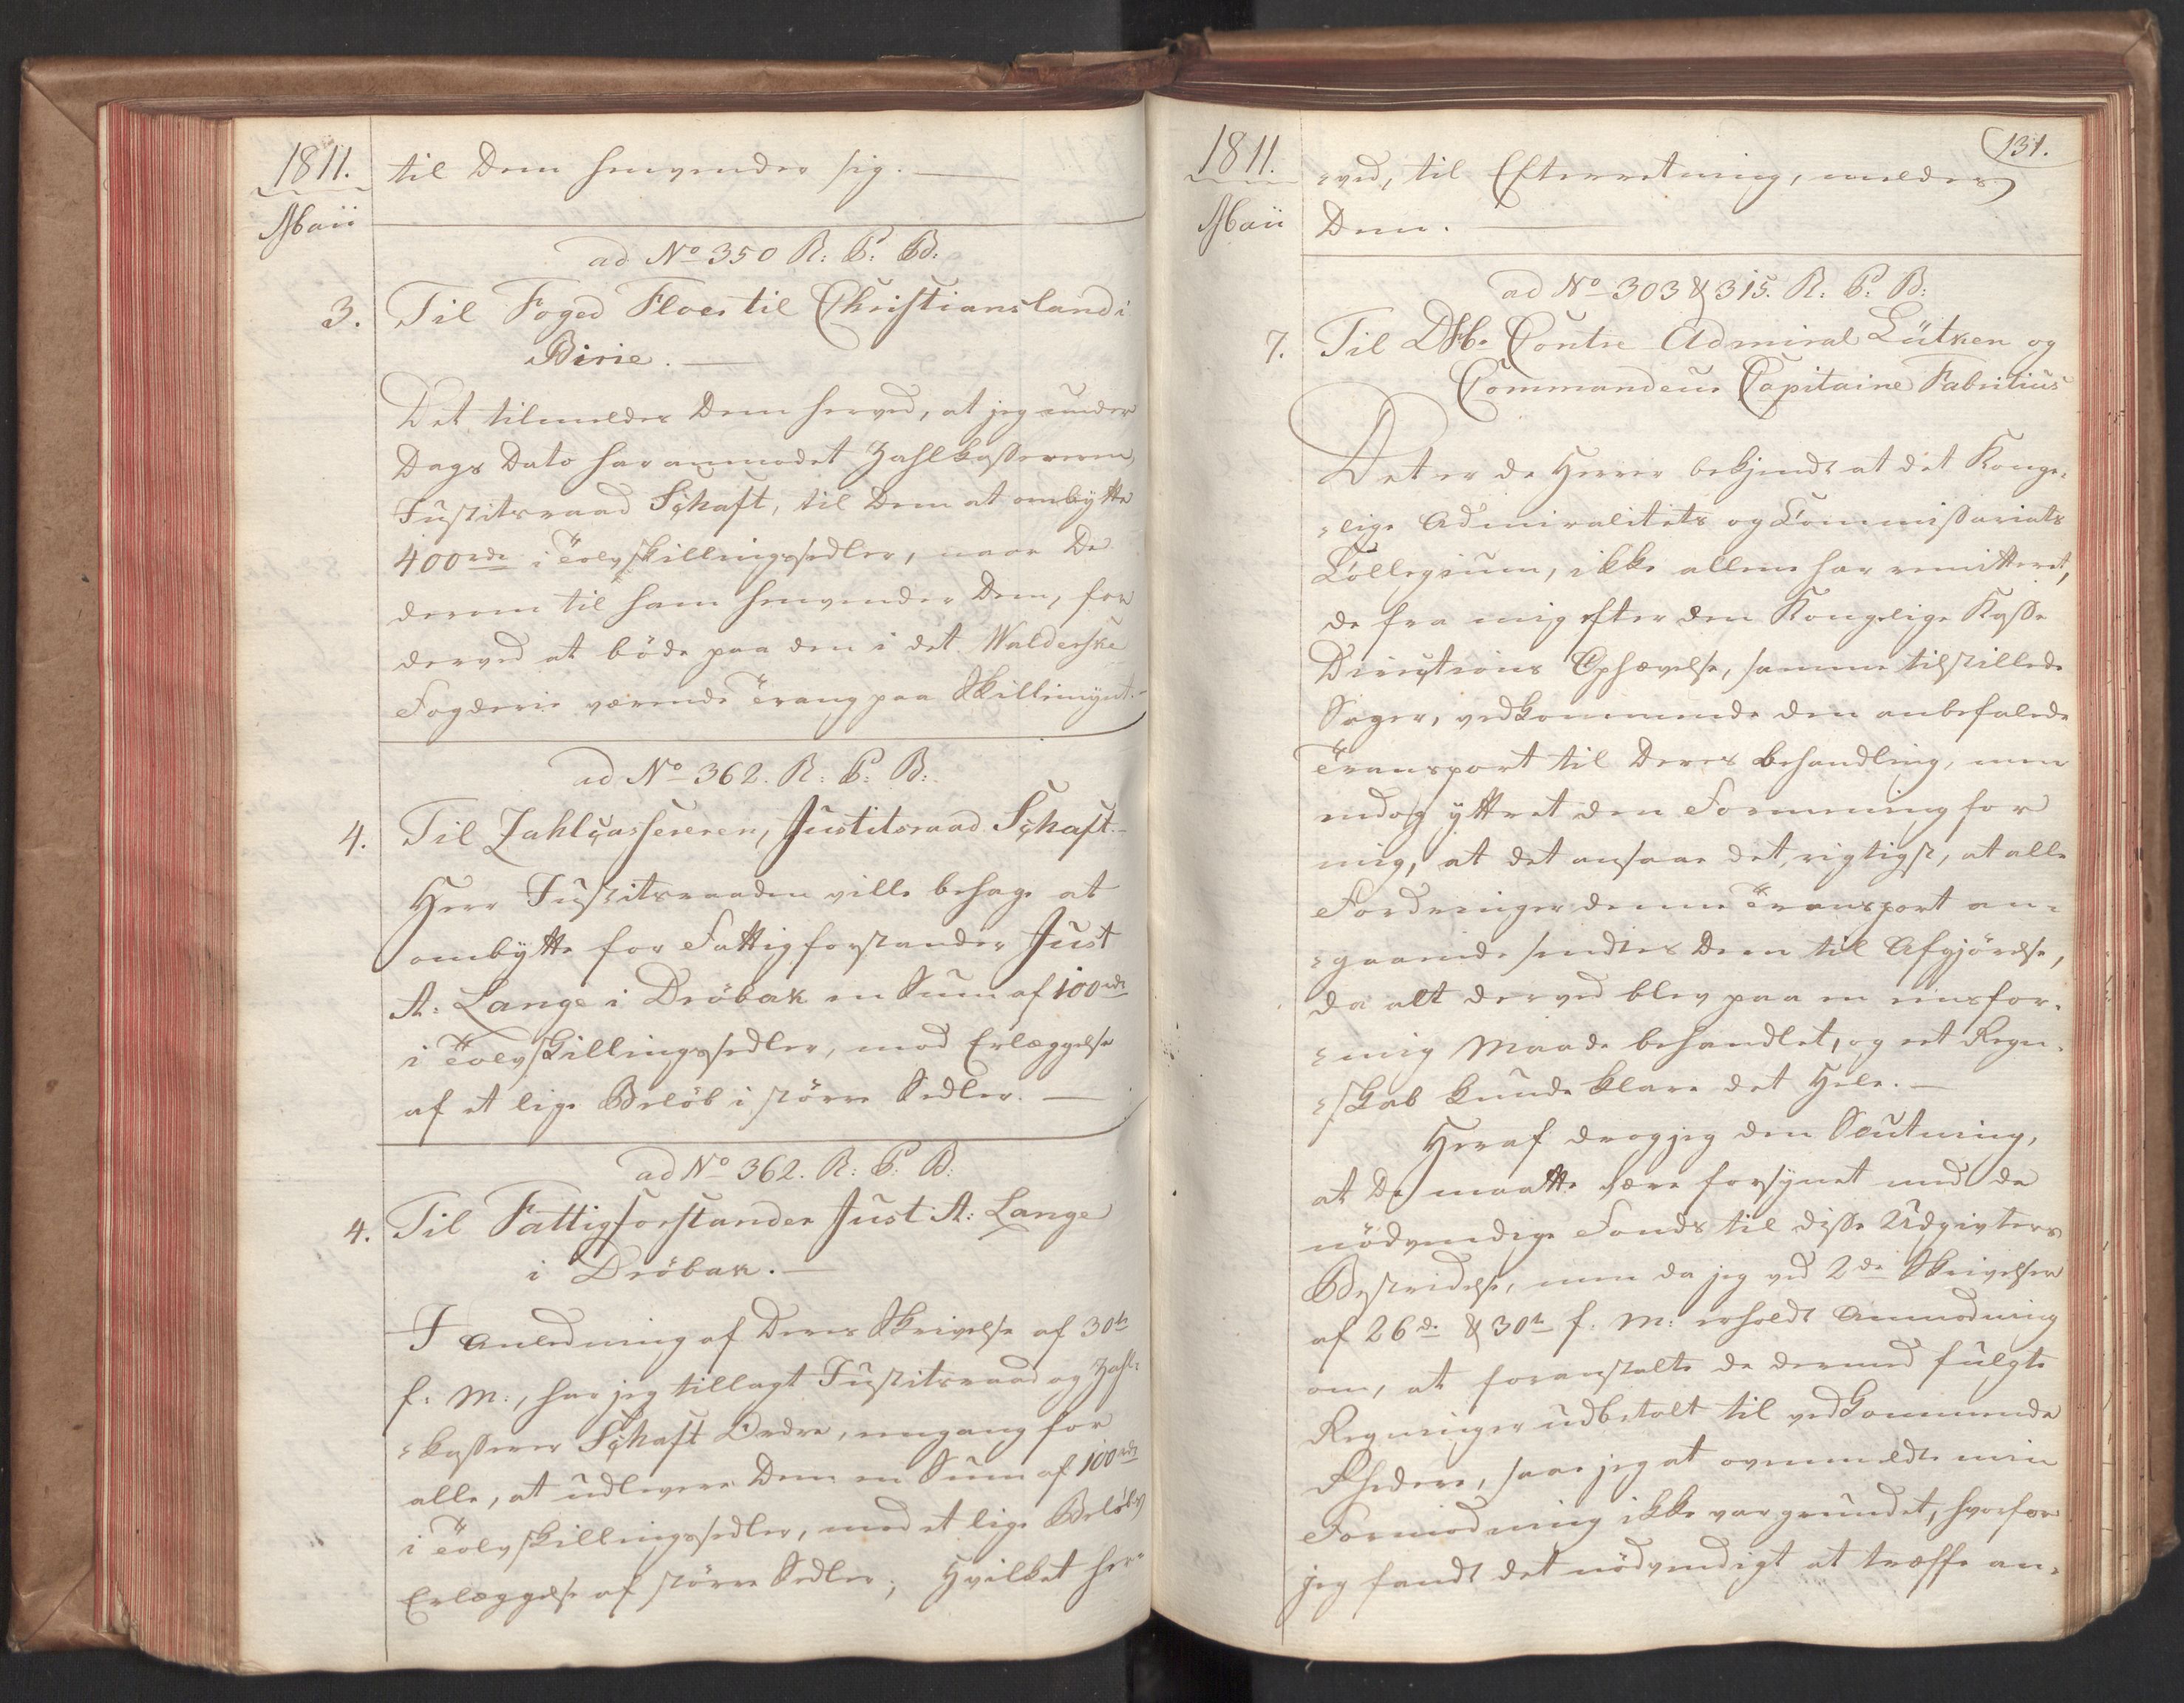 1811.
Maii
til Dem henvender sig.
ad No 350 R: C: B:
3. Til Foged Floer til Christiansland i
Birie.
Det tilmeldes Dem herved, at jeg under
Dags Dato har anmodet Zahlkassereren,
Justitsraad Schaft, til Dem at ombytte
400 rdr i Tolvskillingssedler, naar De
derom til ham henvender Dem, for
derved at böde paa den i det Walderske
Fogderie værende Trang paa Skillemynt.
ad No 362. R: C: B:
4. Til Zahlcassereren, Justitsraad Schaft.
Herr Justitsraaden ville behage at
ombytte for Fattigforstander Just
A: Lange i Dröbak en Sum af 100 rdr
i Tolvskillingssedler, mod Erlæggelse
af et lige Belöb i större Sedler.
ad No 362. R: C: B:
4. Til Fattigforstander Just A: Lange
i Dröbak.
I Anledning af Deres Skrivelse af 30te
f: M:, har jeg tillagt Justitsraad og Zahl-
kasserer Schaft Ordre, engang for
alle, at udlevere Dem en Sum af 100 rdr
i Tolvskillingssedler, mod et lige Belöbs
Erlæggelse af större Sedler; Hvilket her-
131.
1811.
Maii
ved, til Efterretning, meldes
Dem.
ad No 303 & 315. R: C: B:
7. Til DHr. Contre Admiral Lütken og
Commandeur Capitaine Fabritius
Det er de Herrer bekjendt at det Konge-
lige Admiralitets og Commissariats
Collegium, ikke allene har remitteret,
de fra mig efter den Kongelige Kasse
Directions Ophævelse, samme tilstillede
Sager, vedkommende den anbefalede
Transport til Deres Behandling, men
endog yttret den Formening for
mig, at det ansaae det, rigtigst, at alle
Fordringer denne Transport an-
gaaende sendtes Dem til Afgjörelse,
da alt derved blev paa en eensfor-
mig Maade behandlet, og eet Regn-
skab kunde klare det Hele.
Heraf drog jeg den Slutning,
at De maatte være forsynet med de
nödvendige Fonds til disse Udgivters
Bestridelse, men da jeg ved 2de Skrivelser
af 26de & 30te f: M: erholdt Anmodning
om, at foranstalte de dermed fulgte
Regninger udbetalt til vedkommende
Rhedere, saae jeg at ovenmeldte min
Formodning ikke var grundet, hvorfor
jeg fandt det nödvendigt at træffe an-